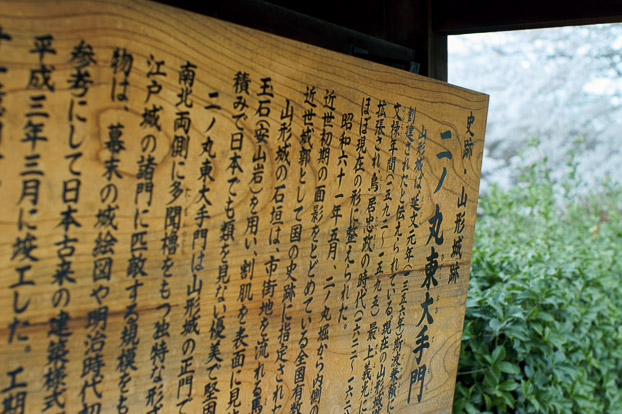 史跡・山形城跡
二ノ丸東大手門
山形城は、延文元年(一三五六年)斯波兼頼に
創建されたと伝えられている。現在の山形城
文禄年間(一五九二~一五九五)最上義光に
拡張され、鳥居忠政の時代(一六二二~一六
ほぼ現在の形に整えられた。
昭和六十一年五月、二ノ丸堀から内側の
近世初期の面影をとどめている全国有数
近世城郭として国の史跡に指定された
山形城の石垣は、市街地を流れる馬
玉石(安山岩)を用い、割肌を表面に見
積みで日本でも類を見ない優美で堅固
二ノ丸東大手門は山形城の正門で
南北両側に多聞櫓をもつ独特な形
江戸城の諸門に匹敵する規模をも
物は、幕末の城絵図や明治時代初
参考にして日本古来の建築様式
平成三年三月に竣工した。工期